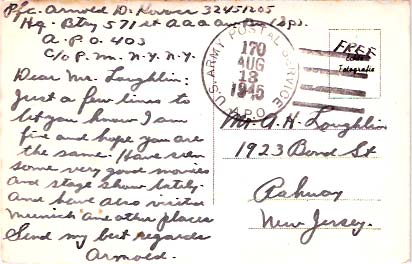 Pfc. Arnold D. Kovar 32451205
Hq. Btry 571 st aaa aw Bn (Sp).
A.P.O. 403
c/o P.M. N.Y. N.Y.
Dear Mr. Loughlin:
Just a few lines to
let you know I am
fine and hope you are
the same. Have seen
some very good movies
and stage show lately.
and have also visited
Munich and other places
Send my best regards
Arnold.
U.S. ARMY POSTAL SERVICE
170
AUG
13
1945
A.P.O.
FREE
Echte
Fotografie
Mr. A. H. Loughlin
1923 Bond St
Rahway
New Jersey.